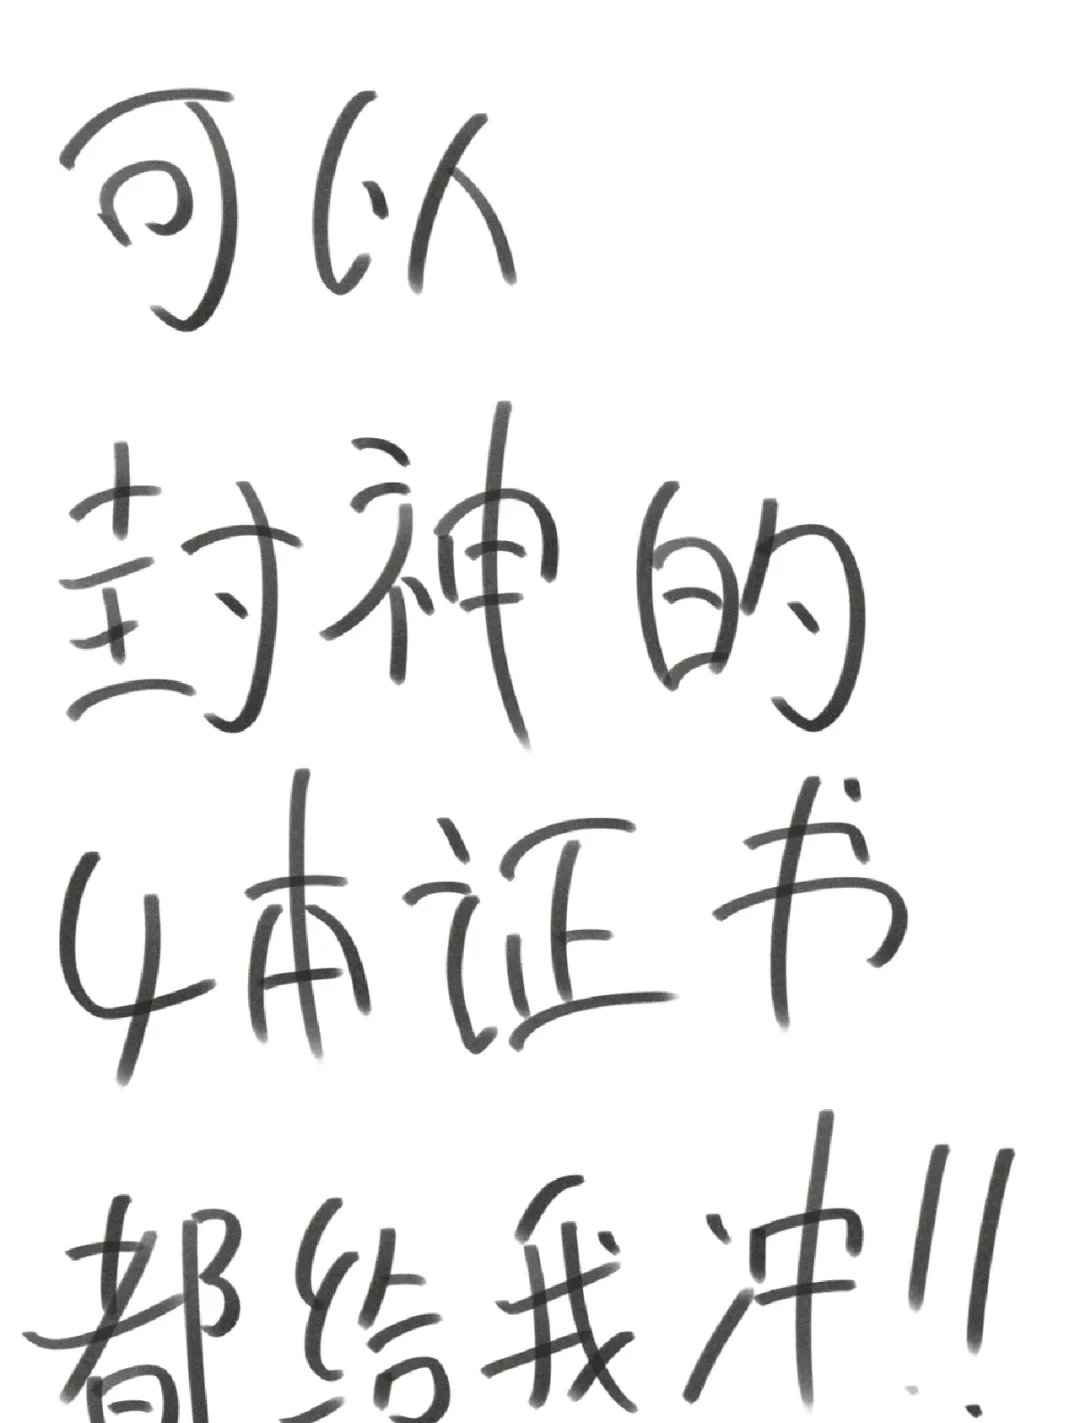 可以
封神的
4本证书
都给我冲!!